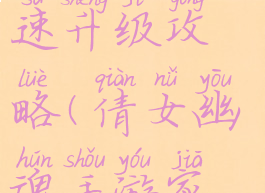 sù shēng jí gōng
速升级攻
lüè qiàn nǚ yōu
略(倩女幽
hún shǒu yóu jiā
魂手游家